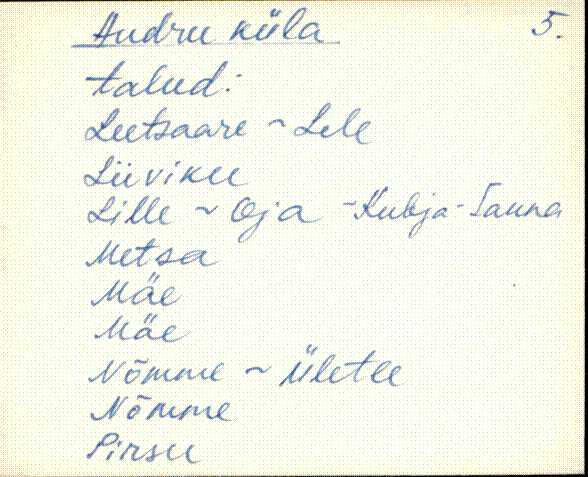 Audru küla 5.
talud:
Leetsaare ~ Lele
Liiviku
Lille ~ Oja ~ Kubja-Sauna
Metsa
Mäe
Mäe
Nõmme ~Ületee
Nõmme
Pirsu